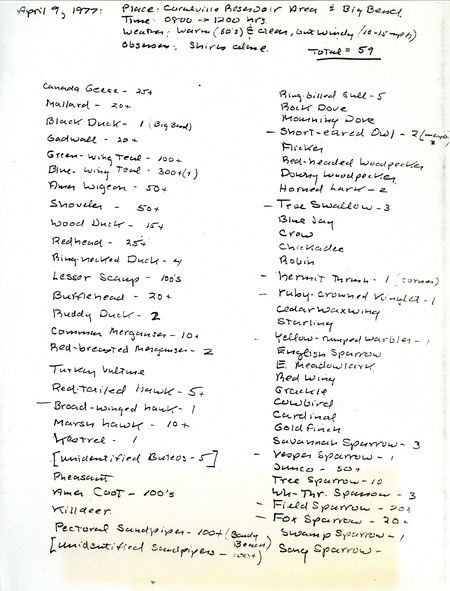 April 9, 1977: Place: Coralville Reservoir Area & Big Bend.
Time: 0800 -> 1200 hrs.
Weather: Warm (60's) & clear, but windy (10-15 mph)
Observer: Shires alone.
Total = 59
Canada Geese - 25+
Mallard - 20+
Black Duck - 1 (Big Bend)
Gadwall - 20+
Green-wing Teal - 100+
Blue-wing Teal - 300+(+)
Amer Wigeon - 50+
Shoveler - 50+
Wood Duck - 15+
Redhead - 25+
Ring-necked Duck - 4
Lesser Scaup - 100's
Bufflehead - 20+
Ruddy Duck - 2
Common Merganser - 10+
Red-breasted Merganser - 2
Turkey Vulture
Red-tailed hawk - 5+
- Broad-winged hawk - 1
Marsh hawk - 10+
Kestrel - 1
[unidentified Buteos - 5]
Pheasant
Amer Coot - 100's
Killdeer
Pectoral Sandpiper - 100+ (Sandy Beach)
[unidentified Sandpipers - 100+]
Ring-billed Gull - 5
Rock Dove
Mourning Dove
- Short-eared Owl - 2
Flicker
Red-headed Woodpecker
Downy Woodpecker
Horned Lark - 2
- Tree Swallow - 3
Blue Jay
Crow
Chickadee
Robin
- hermit Thrush - 1
- ruby-crowned kinglet - 1
Cedar waxwing
Starling
- Yellow-rumped warbler - 1
English Sparrow
E. Meadowlark
Red wing
Grackle
Cowbird
Cardinal
Goldfinch
Savannah Sparrow - 3
- Vesper Sparrow - 1
Junco - 50+
Tree Sparrow - 10
Wh-Thr. Sparrow - 3
- Field Sparrow - 20+
- Fox Sparrow - 20+
Swamp Sparrow - 1
Song Sparrow -